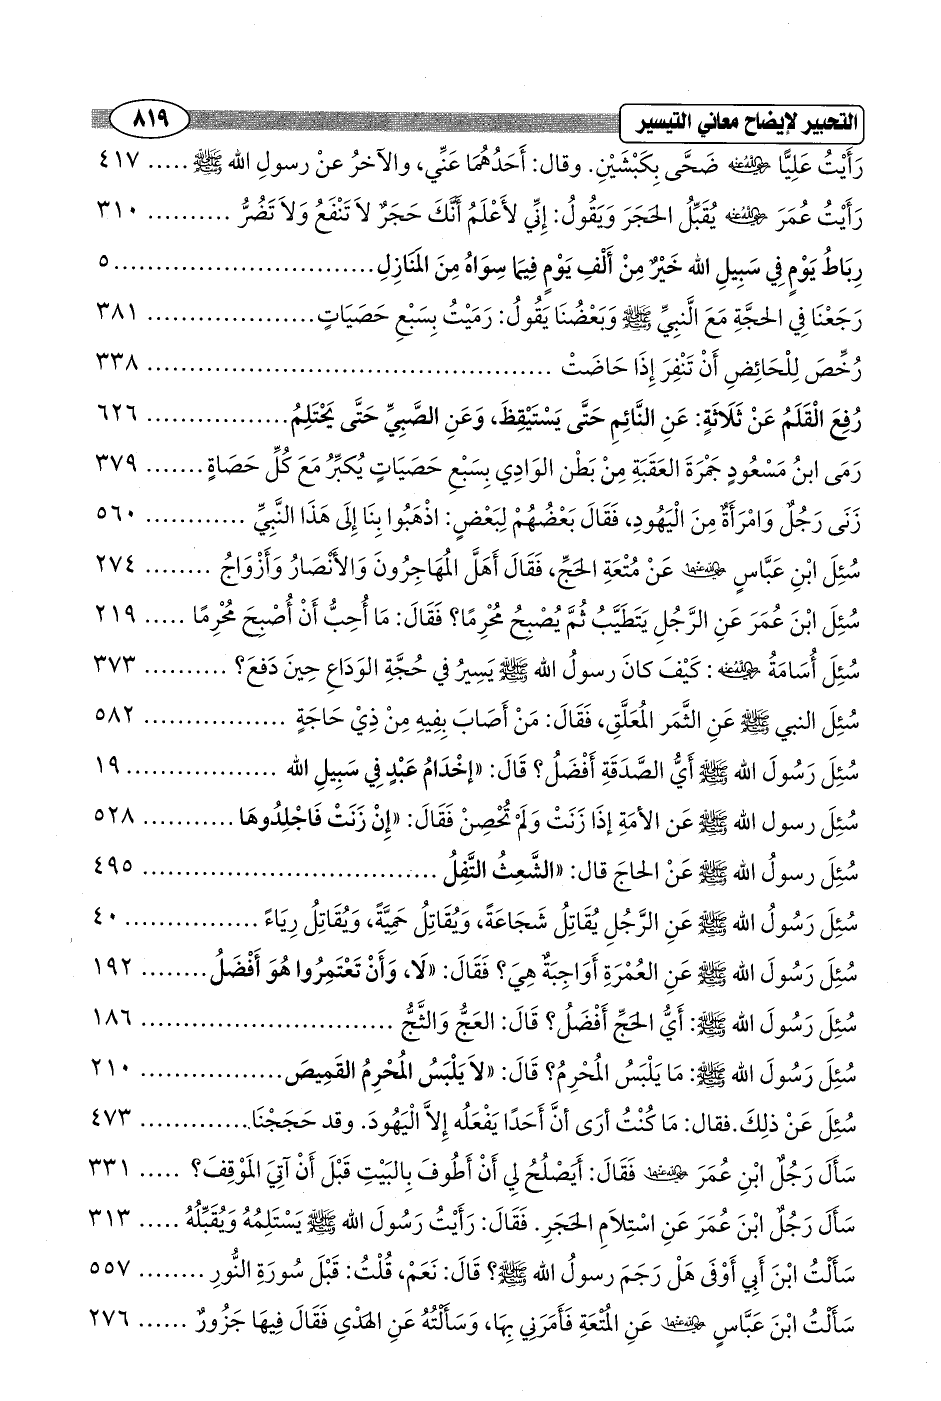 التحبير لإيضاح معاني التيسير ٨١٩
رَأَيْتُ عَلِيًّا رضي الله عنه ضَحَّى بِكَبْشَيْنِ. وقال: أَحَدُهُمَا عَنِّي، والآخرُ عنْ رسولِ الله ﷺ ..... ٤١٧
رَأَيْتُ عُمَرَ رضي الله عنه يُقَبِّلُ الحَجَرَ وَيَقُولُ: إِنِّي لأَعْلَمُ أَنَّكَ حَجَرٌ لاَ تَنْفَعُ وَلاَ تَضُرُّ .......... ٣١٠
رِبَاطُ يَوْمٍ فِي سَبِيلِ الله خَيْرٌ مِنْ أَلْفِ يَوْمٍ فِيمَا سِوَاهُ مِنَ المَنَازِلِ.............................. ٥
رَجَعْنَا فِي الحَجَّةِ مَعَ الَّنبِيِّ ﷺ وَبَعْضُنَا يَقُولُ: رَمَيْتُ بِسَبْعِ حَصَيَاتٍ.................... ٣٨١
رُخِّصَ لِلْحَائِضِ أَنْ تَنْفِرَ إِذَا حَاضَتْ .............................................. ٣٣٨
رُفِعَ الْقَلَمُ عَنْ ثَلَاثَةٍ: عَنِ النَّائِمِ حَتَّى يَسْتَيْقِظَ، وَعَنِ الصَّبِيِّ حَتَّى يَحْتَلِمُ................ ٦٢٦
رَمَى ابنُ مَسْعُودٍ جَمْرَةَ العَقَبَةِ مِنْ بَطْنِ الوَادِي بِسَبْعِ حَصَيَاتٍ يُكَبِّرُ مَعَ كُلِّ حَصَاةٍ....... ٣٧٩
زَنَى رَجُلٌ وَامْرَأَةٌ مِنَ الْيَهُودِ، فَقَالَ بَعْضُهُمْ لِبَعْضٍ: اذْهَبُوا بِنَا إِلَى هَذَا النَّبِيِّ ............ ٥٦٠
سُئِلَ ابْنِ عَبَّاسٍ رضي الله عنهما عَنْ مُتْعَةِ الحَجِّ، فَقَالَ أَهَلَّ المُهَاجِرُونَ وَالأَنْصَارُ وَأَزْوَاجُ ........ ٢٧٤
سُئِلَ ابْنَ عُمَرَ عَنِ الرَّجُلِ يَتَطَيَّبُ ثُمَّ يُصْبِحُ مُحْرِمًا؟ فَقَالَ: مَا أُحِبُّ أَنْ أُصْبِحَ مُحْرِمًا ..... ٢١٩
سُئِلَ أُسَامَةُ رضي الله عنه : كَيْفَ كانَ رسولُ الله ﷺ يَسِيرُ في حُجَّةِ الوَدَاعِ حِينَ دَفعَ؟ .......... ٣٧٣
سُئِلَ النبي ﷺ عَنِ الثَّمَر المُعَلَّقِ، فَقَالَ: مَنْ أَصَابَ بِفِيهِ مِنْ ذِيْ حَاجَةٍ ................ ٥٨٢
سُئِلَ رَسُولَ الله ﷺ أَيُّ الصَّدَقَةِ أَفْضَلُ؟ قَالَ: «إخْدَامُ عَبْدٍ فِي سَبِيلِ الله .................. ١٩
سُئِلَ رسول الله ﷺ عَنِ الأمَةِ إذَا زَنَتْ وَلَمْ تُحْصِنْ فَقَالَ: «إِنْ زَنَتْ فَاجْلِدُوهَا ........... ٥٢٨
سُئِلَ رسولُ الله ﷺ عَنْ الحَاجَ قال: «الشَّعِثُ التَّفِلُ .................................. ٤٩٥
سُئِلَ رَسُولُ الله ﷺ عَنِ الرَّجُلِ يُقَاتِلُ شَجَاعَةً، وَيُقَاتِلُ حَمِيَّةً، وَيُقَاتِلُ رِيَاءً ............... ٤٠
سُئِلَ رَسُولَ الله ﷺ عَنِ العُمْرَةِ أَوَاجِبَةٌ هِيَ؟ فَقَالَ: «لَا، وَأَنْ تَعْتَمِرُوا هُوَ أَفْضَلُ........ ١٩٢
سُئِلَ رَسُولَ الله ﷺ: أَيُّ الحَجِّ أَفْضَلُ؟ قَالَ: العَجُّ وَالثَّجُّ ............................. ١٨٦
سُئِلَ رَسُولَ الله ﷺ: مَا يَلْبَسُ المُحْرِمُ؟ قَالَ: «لاَ يَلْبَسُ المُحْرِمُ القَمِيصَ................ ٢١٠
سُئِلَ عَنْ ذلِكَ.فقال: مَا كُنْتُ أرَى أنَّ أَحَدًا يَفْعَلُه إلاَّ الْيَهُودَ. وقد حَجَجْنَا............. ٤٧٣
سَألَ رَجُلٌ ابْنِ عُمَرَ رضي الله عنهما فَقَالَ: أَيَصْلُحُ لِي أَنْ أَطُوفَ بِالبَيْتِ قَبْلَ أَنْ آتِيَ المَوْقِفَ؟ ..... ٣٣١
سَألَ رَجُلٌ ابْنَ عُمَرَ عَنِ اسْتِلاَمِ الحَجَرِ. فَقَالَ: رَأَيْتُ رَسُولَ الله ﷺ يَسْتَلِمُهُ وَيُقَبِّلُهُ ..... ٣١٣
سَألْتُ ابْنَ أبِي أوْفَى هَلْ رَجَمَ رسولُ الله ﷺ؟ قَالَ: نَعَمْ، قُلْتُ: قَبْلَ سُورَةِ النُّورِ ........ ٥٥٧
سَألتُ ابْنَ عَبَّاسٍ رضي الله عنهما عَنِ المُتْعَةِ فَأمَرَنِي بِهَا، وَسَألْتُهُ عَنِ الهَدْيِ فَقَالَ فِيهَا جَزُورٌ ...... ٢٧٦